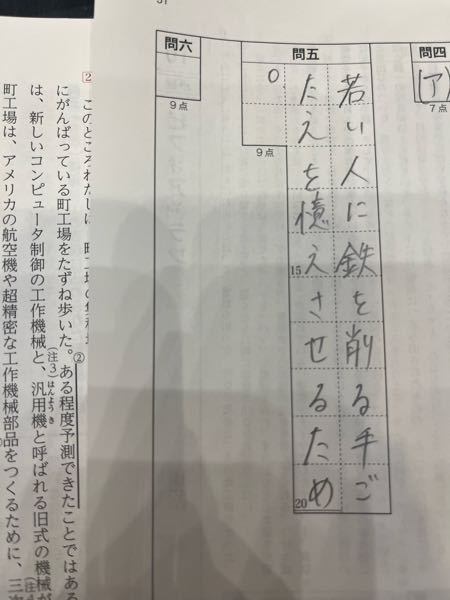 問四
(ア)
7点
問五
若い人に鉄を削る手ご
たえを憶えさせるため
。
15
20
9点
問六
9点
2
このところわたしは
にがんばっている町工場をたずね歩いた。②ある程度予測できたことではある
は、新しいコンピュータ制御の工作機械と、(注3)汎用機と呼ばれる旧式の機械が
はんようき
町工場は、アメリカの航空機や超精密な工作機械部品をつくるために、三次